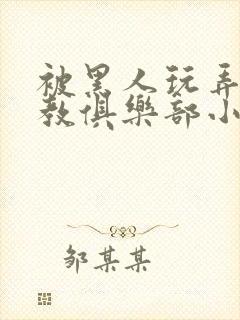 被黑人玩弄
教俱樂部小
邹某某